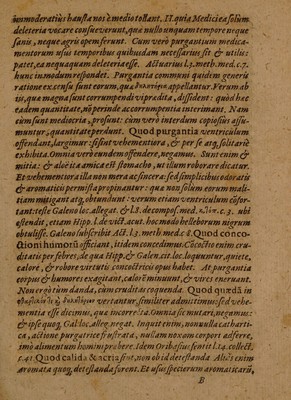 immoderatius hausta nos è medio tollant. It. quia Medici ea solum
deleteria vocare consueuerunt, quæ nullo unquam tempore neque
sanis, neque ægris opem ferunt. Cum verò purgantium medica-
mentorum usus temporibus quibusdam necessarius sit & utilis:
patet, ea nequaquam deleteria esse. Actuarius l.3. meth.med.c.7.
hunc in modum respondet. Purgantia communi quidem generis
ratione ex censu sunt eorum, quæ appellantur. Verum ab
iis, quæ magna sunt corrumpendi vi prædita, dissident: quòd hæc
eadem quantitate, perinde ac corrumpentia interimant. Nam
cum sunt mediocria, prosunt: cum verò interdum copiosius assu-
muntur, quantitate perdunt. Quod purgantia ventriculum
offendant, largimur: si sint vehementiora, & per se atq; solitariè
exhibita. Omnia verò eundem offendere, negamus. Sunt enim &
mitia: & aloë ita amica est stomacho, ut illum roborare dicatur.
Et vehementiora illa non mera ac sincera: sed simplicibus odoratis
& aromaticis permista propinantur: quæ non solum eorum mali-
tiam mitigant atq; obtundunt: verum etiam ventriculum confor-
tant: teste Galeno loc. allegat. & l.8. de compos. med. c.3. ubi
ostendit, etiam Hipp. l. de vict. acut. hoc modo helleborum nigrum
obtulisse. Galeno subscribit Act. l.3. meth. med. c.8. Quod conco-
ctioni humorũ officiant, itidem concedimus. Cococtio enim cru-
ditatis per febres, de qua Hipp. & Galen. cit. loc. loquuntur, quiete,
calore, & robore virtutis concoctricis opus habet. At purgantia
corpus & humores exagitant, calorẽ minuunt, & vires eneruant.
Non ergo tum danda, cum cruditas coquenda. Quod quædã in
vertantur, similiter admittimus: sed vehe-
mentia esse dicimus, quæ incorrecta. Omnia sic mutari, negamus:
& ipse quoq; Gal. loc. alleg. negat. Inquit enim, nonnulla catharti-
ca, actione purgatrice frustrata, nullam noxam corpori adferre,
imò alimentum homini præbere. Idem Oribasius sentit l.14. collect.
c.41. Quod calida & acria sint, non ob id detestanda. Aliàs enim
aromata quoq; detestanda forent. Et usus specierum aromaticarũ,
B